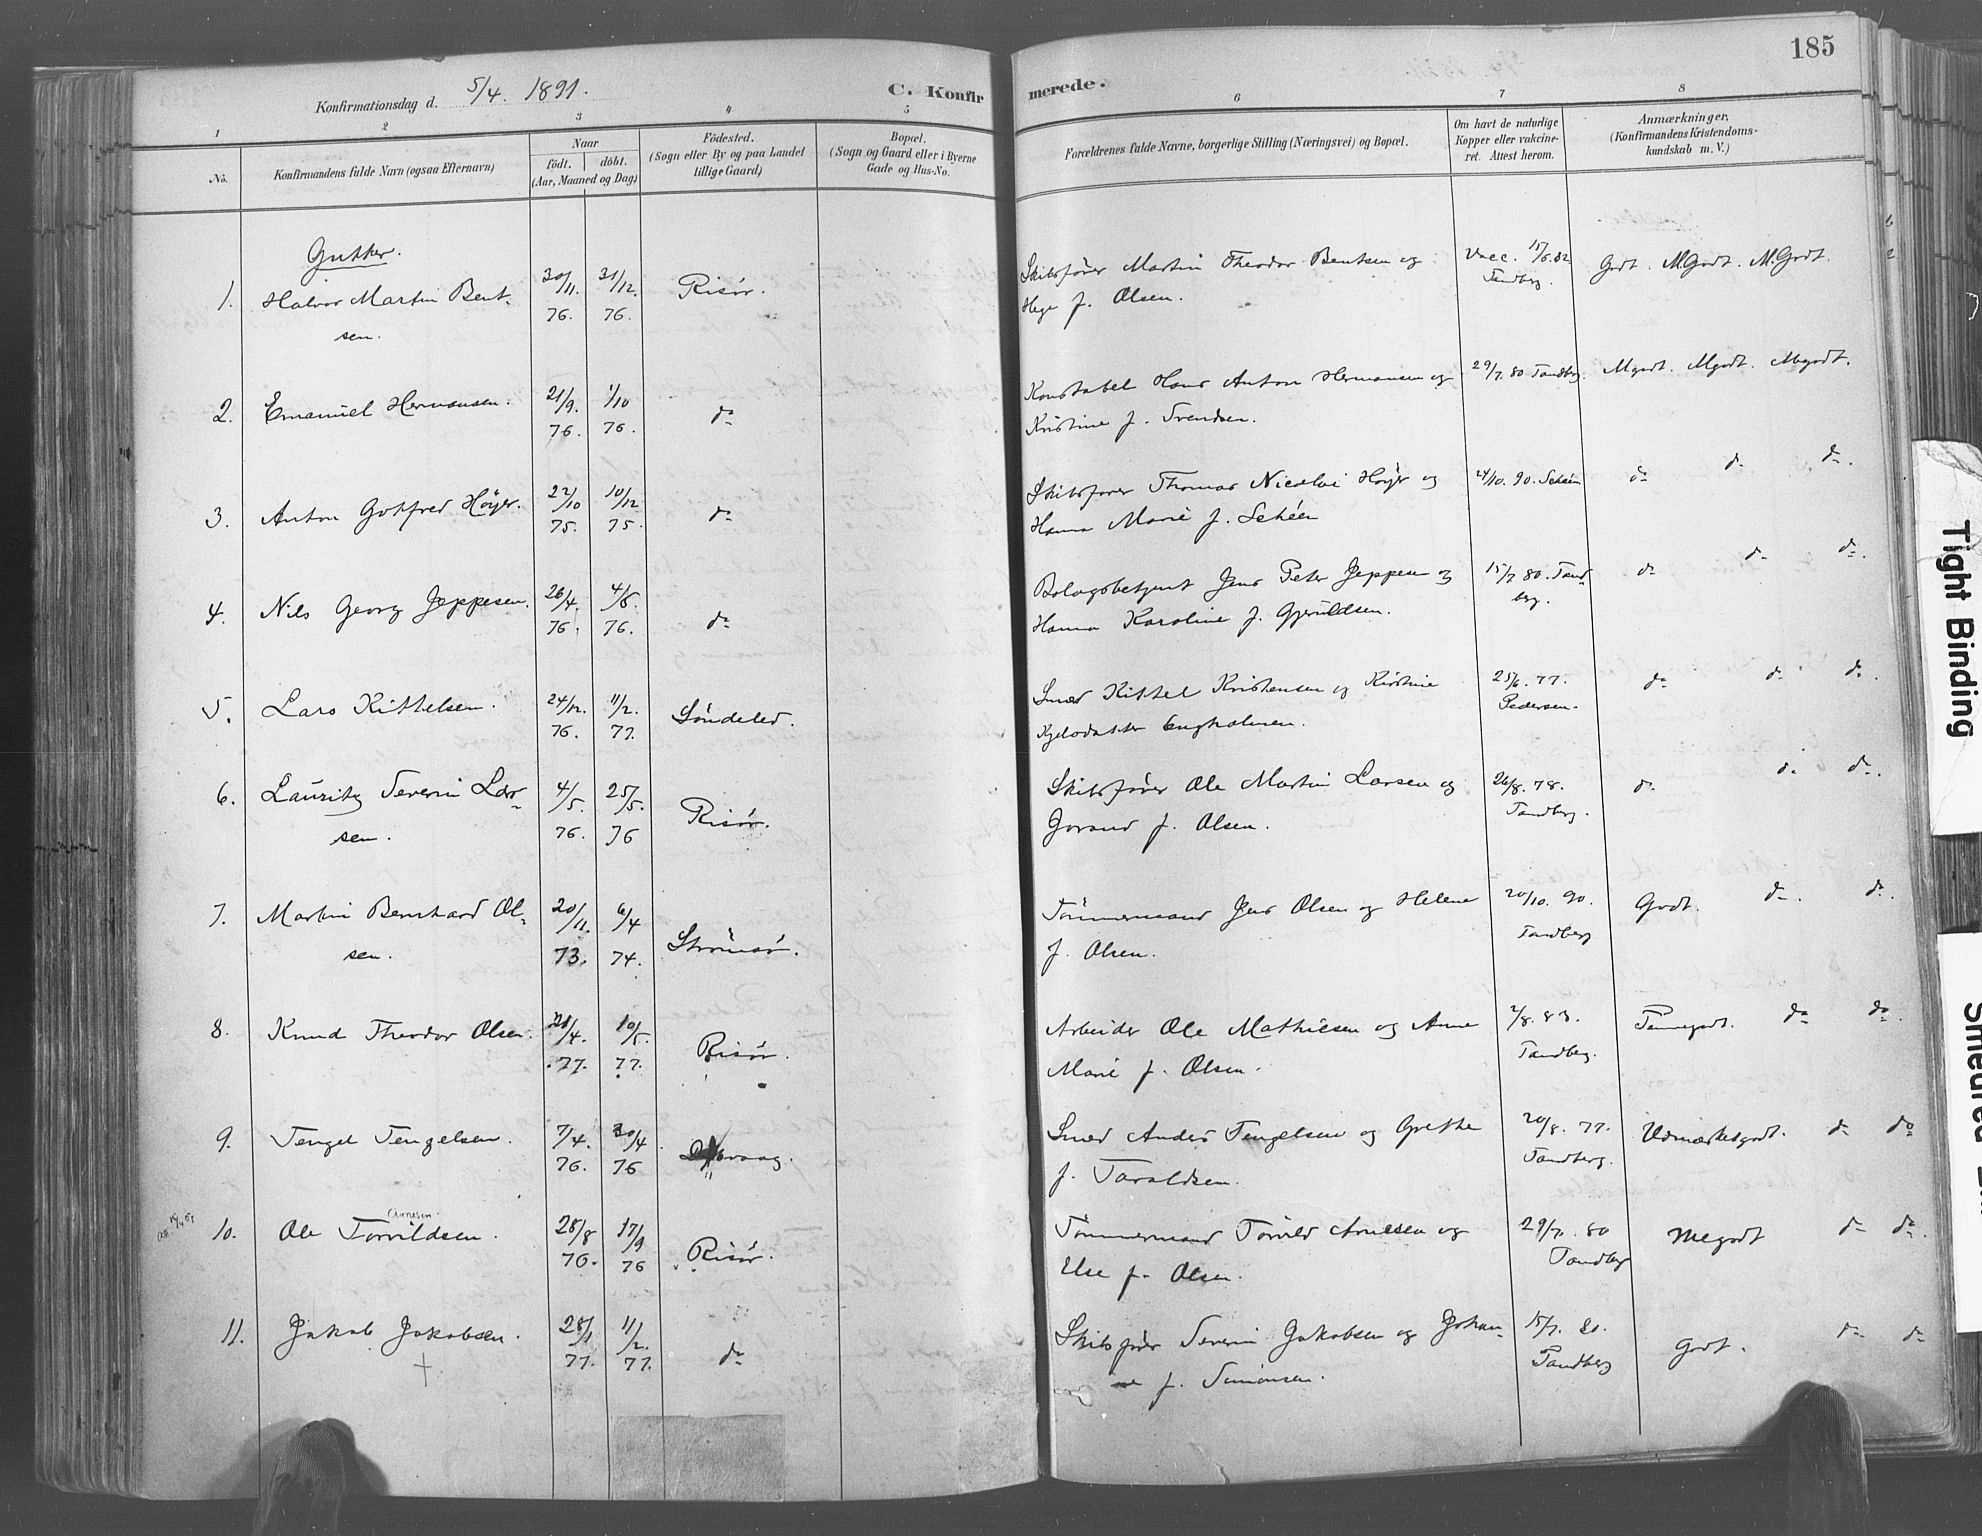 185
Konfirmationsdag d. 5/4. 1891.
C. Konfirmerede.
1 2 3 4 5 6 7 8
No.
Konfirmandens fulde Navn (ogsaa Efternavn)
Naar
født. døbt.
(Aar, Maaned og Dag)
Födested.
(Sogn eller By og paa Landet
tillige Gaard)
Bopæl.
(Sogn og Gaard eller i Byerne
Gade og Hus-No.
Forældrenes fulde Navne, borgerlige Stilling (Næringsvei) og Bopæl.
Om havt de naturlige
Kopper eller vakcine-
ret. Attest herom.
Anmærkninger,
(Konfirmandens Kristendoms-
kundskab m. V.)
Gutter.
1. Halvor Martin Bent-
sen.
30/11. 76. 31/12. 76. Risör.
Skibsförer Martin Theodor Bentsen og
Hege f. Olsen.
Vacc. 15/6. 82
Tandberg.
Godt. M.Godt. M.Godt.
2. Emanuel Hermansen.
21/9. 76. 1/10 76. do
Konstabel Hans Anton Hermansen og
Kristine f. Svendsen.
29/7. 80 Tandberg.
Mgodt. Mgodt. Mgodt.
3. Anton Gotfred Höyer.
22/10 75. 10/12 75. do
Skibsförer Thomas Nicolai Höyer og
Hanna Marie f. Schéen
24/10. 90. Schéen
do do do.
4. Nils Georg Jeppesen.
26/4. 76. 4/6. 76. do
Bolagsbetjent Jens Peter Jeppesen og
Hanna Karoline f. Gjeruldsen.
15/7 80. Tand-
berg.
do do do.
5. Lars Kittelsen.
24/12. 76. 11/2. 77. Söndeled.
Smed Kittel Kristensen og Kirstine
Kjelsdatter
25/6. 77.
Pedersen.
do do do.
6. Lauritz Severin Lar-
sen.
4/5. 76. 25/5. 76 Risör.
Skibsförer Ole Martin Larsen og
Jorand f. Olsen.
26/8. 78.
Tandberg.
do do do.
7. Martin Bernhard Ol-
sen.
20/11. 73. 6/4 74. Strömsö.
Tömmermand Jens Olsen og Helene
f. Olsen.
20/10. 90.
Tandberg
Godt. do. do.
8. Knud Theodor Olsen.
21/4. 77. 10/5. 77. Risör.
Arbeider Ole Mathiesen og Anne
Marie f. Olsen.
2/8. 83.
Tandberg.
Temmegodt. do do.
9. Tengel Tengelsen.
7/4. 76. 30/4 76
Smed Anders Tengelsen og Grethe
f. Taraldsen.
20/8. 77.
Tandberg.
Udmærketgodt. do do
10. Ole Torvildsen.
Arnesen.
28/8 76. 17/9 76 Risör.
Tömmermand Torvild Arnesen og
Else f. Olsen.
29/7. 80
Tandberg
Megodt do do.
11. Jakob Jakobsen.
28/1 77. 11/2. 77. do
Skibsförer Severin Jakobsen og Johan-
ne f. Simonsen.
15/7. 80.
Tandberg
Godt. do do
Tight Binding